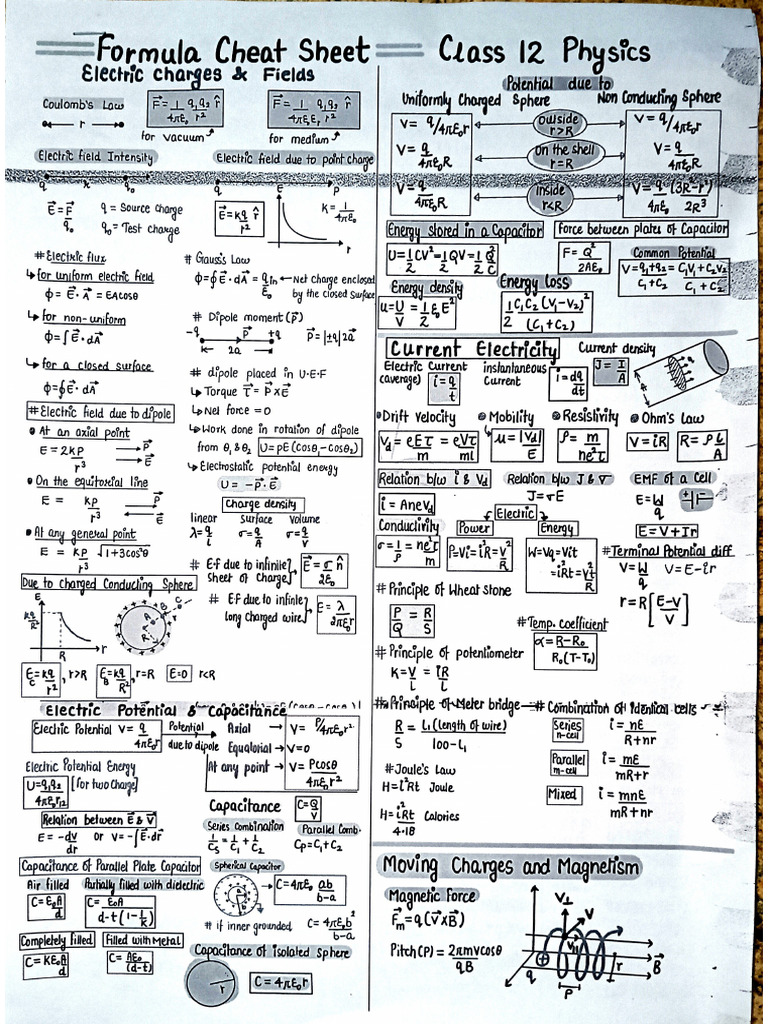 Formula Cheat Sheet
Class 12 Physics
Electric charges & Fields
Coulomb's Law
r
F⃗ = 1/4πε₀ q₁q₂/r² r̂
for vacuum
F⃗ = 1/4πε₀εᵣ q₁q₂/r² r̂
for medium
Electric field Intensity
q x q₀
E⃗ = F⃗/q₀
q = Source charge
q₀ = Test charge
Electric field due to point charge
q E P
E⃗ = kq/r² r̂
E
r
K = 1/4πε₀
# Electric flux
for uniform electric field
Φ = E⃗ . A⃗ = EAcosθ
for non-uniform
Φ = ∫E⃗ . dA⃗
for a closed surface
Φ = ∮E⃗ . dA⃗
# Gauss's Law
Φ = ∮E⃗ . dA⃗ = qin/ε₀ ← Net charge enclosed
by the closed Surface
# Dipole moment (p⃗)
-q P⃗ +q
2a
P⃗ = |±q| 2a⃗
# dipole placed in U.E.F
Torque τ⃗ = P⃗ x E⃗
Net force = 0
Work done in rotation of dipole
from θ₁ & θ₂ U = pE(cosθ₁-cosθ₂)
Electrostatic potential energy
U = -P⃗ . E⃗
# Electric field due to dipole
At an axial point
E = 2KP/r³ P⃗ E⃗
On the equitorial line
E = KP/r³ P⃗ E⃗
At any general point
E = KP/r³ √1+3cos²θ
Charge density
linear surface volume
λ = q/L σ = q/A σ = q/V
# E.F due to infinite
sheet of Charge
E⃗ = σ/2ε₀ n̂
# E.F due to infinite
long charged wire
E = λ/2πε₀r
Due to charged Conducting Sphere
E
kq/R²
R r
A B C
E_C = kq/r², r>R
E_B = kq/R², r=R
E=0 r<R
Electric Potential & Capacitance
Electric Potential V = q/4πε₀r
Potential
due to dipole
Axial → V = P/4πε₀r²
Equatorial → V=0
At any point → V = Pcosθ/4πε₀r²
Electric Potential Energy
U = q₁q₂/4πε₀r₁₂ [for two charge]
Relation between E⃗ & V⃗
E = -dv/dr or V = -∫E⃗.dr⃗
Capacitance
C = Q/V
Series combination
1/Cs = 1/C₁ + 1/C₂
Parallel Comb.
Cp = C₁ + C₂
Capacitance of Parallel Plate Capacitor
Air filled
C = ε₀A/d
Partially filled with dielectric
C = ε₀A/d-t(1-1/k)
Completely filled
C = Kε₀A/d
Filled with Metal
C = Aε₀/(d-t)
Spherical Capacitor
C = 4πε₀ ab/b-a
# if inner grounded C = 4πε₀b²/b-a
Capacitance of isolated sphere
r
C = 4πε₀r
Potential due to
Uniformly Charged Sphere
Non Conducting Sphere
V = q/4πε₀r outside r>R V = q/4πε₀r
V = q/4πε₀R On the shell r=R V = q/4πε₀R
V = q/4πε₀R inside r<R V = q/4πε₀ (3R²-r²)/2R³
Energy stored in a Capacitor
U = 1/2 CV² = 1/2 QV = 1/2 Q²/C
Force between plates of Capacitor
F = Q²/2Aε₀
Common Potential
V = q₁+q₂/C₁+C₂ = C₁V₁+C₂V₂/C₁+C₂
Energy density
u = U/V = 1/2 ε₀E²
Energy loss
1/2 C₁C₂(V₁-V₂)²/(C₁+C₂)
Current Electricity
Electric Current
(average)
i = q/t
instantaneous
Current
i = dq/dt
Current density
J⃗ = I/A
Drift Velocity
Vd = eEτ/m = eVτ/ml
Mobility
μ = |Vd|/E
Resistivity
ρ = m/ne²τ
Ohm's Law
V = iR
R = ρL/A
Relation b/w i & Vd
i = AneVd
Relation b/w J & σ
J = σE
EMF of a Cell
E = W/q
E = V + Ir
Conductivity
σ = 1/ρ = ne²τ/m
Electric
Power
P = Vi = i²R = V²/R
Energy
W = Vq = Vit
= i²Rt = V²t/R
# Terminal Potential diff
V = W/q V = E-ir
r = R[E-V/V]
# Principle of Wheat stone
P/Q = R/S
# Temp. coefficient
α = R-R₀/R₀(T-T₀)
# Principle of potentiometer
K = V/L = iR/L
# Principle of Meter bridge
R/S = L₁(length of wire)/100-L₁
# Combination of identical cells
Series
n-cell
i = nE/R+nr
Parallel
m-cell
i = mE/mR+r
Mixed
i = mnE/mR+nr
# Joule's Law
H = i²Rt Joule
H = i²Rt/4.18 Calories
Moving Charges and Magnetism
Magnetic Force
F⃗m = q(V⃗xB⃗)
Pitch(P) = 2πmvcosθ/qB
V⊥ V
V∥
q
P
r
B⃗